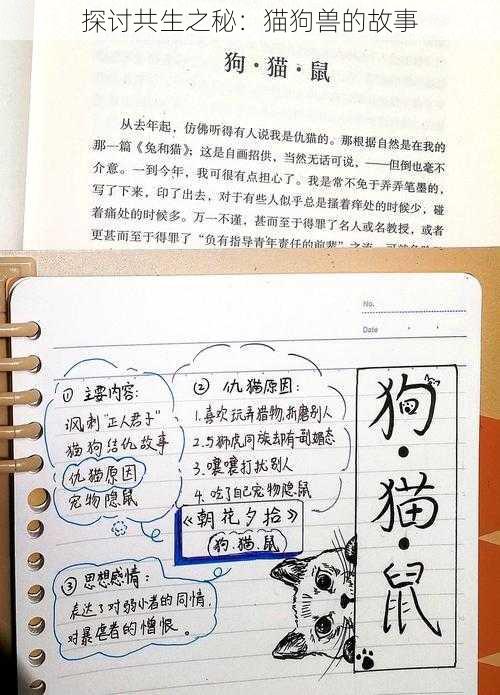 探讨共生之秘：猫狗兽的故事
狗·猫·鼠
从去年起，仿佛听得有人说我是仇猫的。那根据自然是在我的
那一篇《兔和猫》；这是自画招供，当然无话可说，——但倒也毫不
介意。一到今年，我可很有点担心了。我是常不免于弄弄笔墨的，
写了下来，印了出去，对于有些人似乎总是搔着痒处的时候少，碰
着痛处的时候多。万一不谨，甚而至于得罪了名人或名教授，或者
更甚而至于得罪了“负有指导青年责任的前辈”之流
No.
Date
① 主要内容：
讽刺“正人君子”
猫狗结仇故事
仇猫原因
宠物隐鼠
② 仇猫原因：
1.喜欢玩弄猎物,折磨别人
2.与狮虎同族却有一副媚态
3.嚷嚷打扰别人
4.吃了自己宠物隐鼠
《朝花夕拾》
狗.猫.鼠
③ 思想感情：
表达了对弱小者的同情,
对暴虐者的憎恨。
狗·猫·鼠